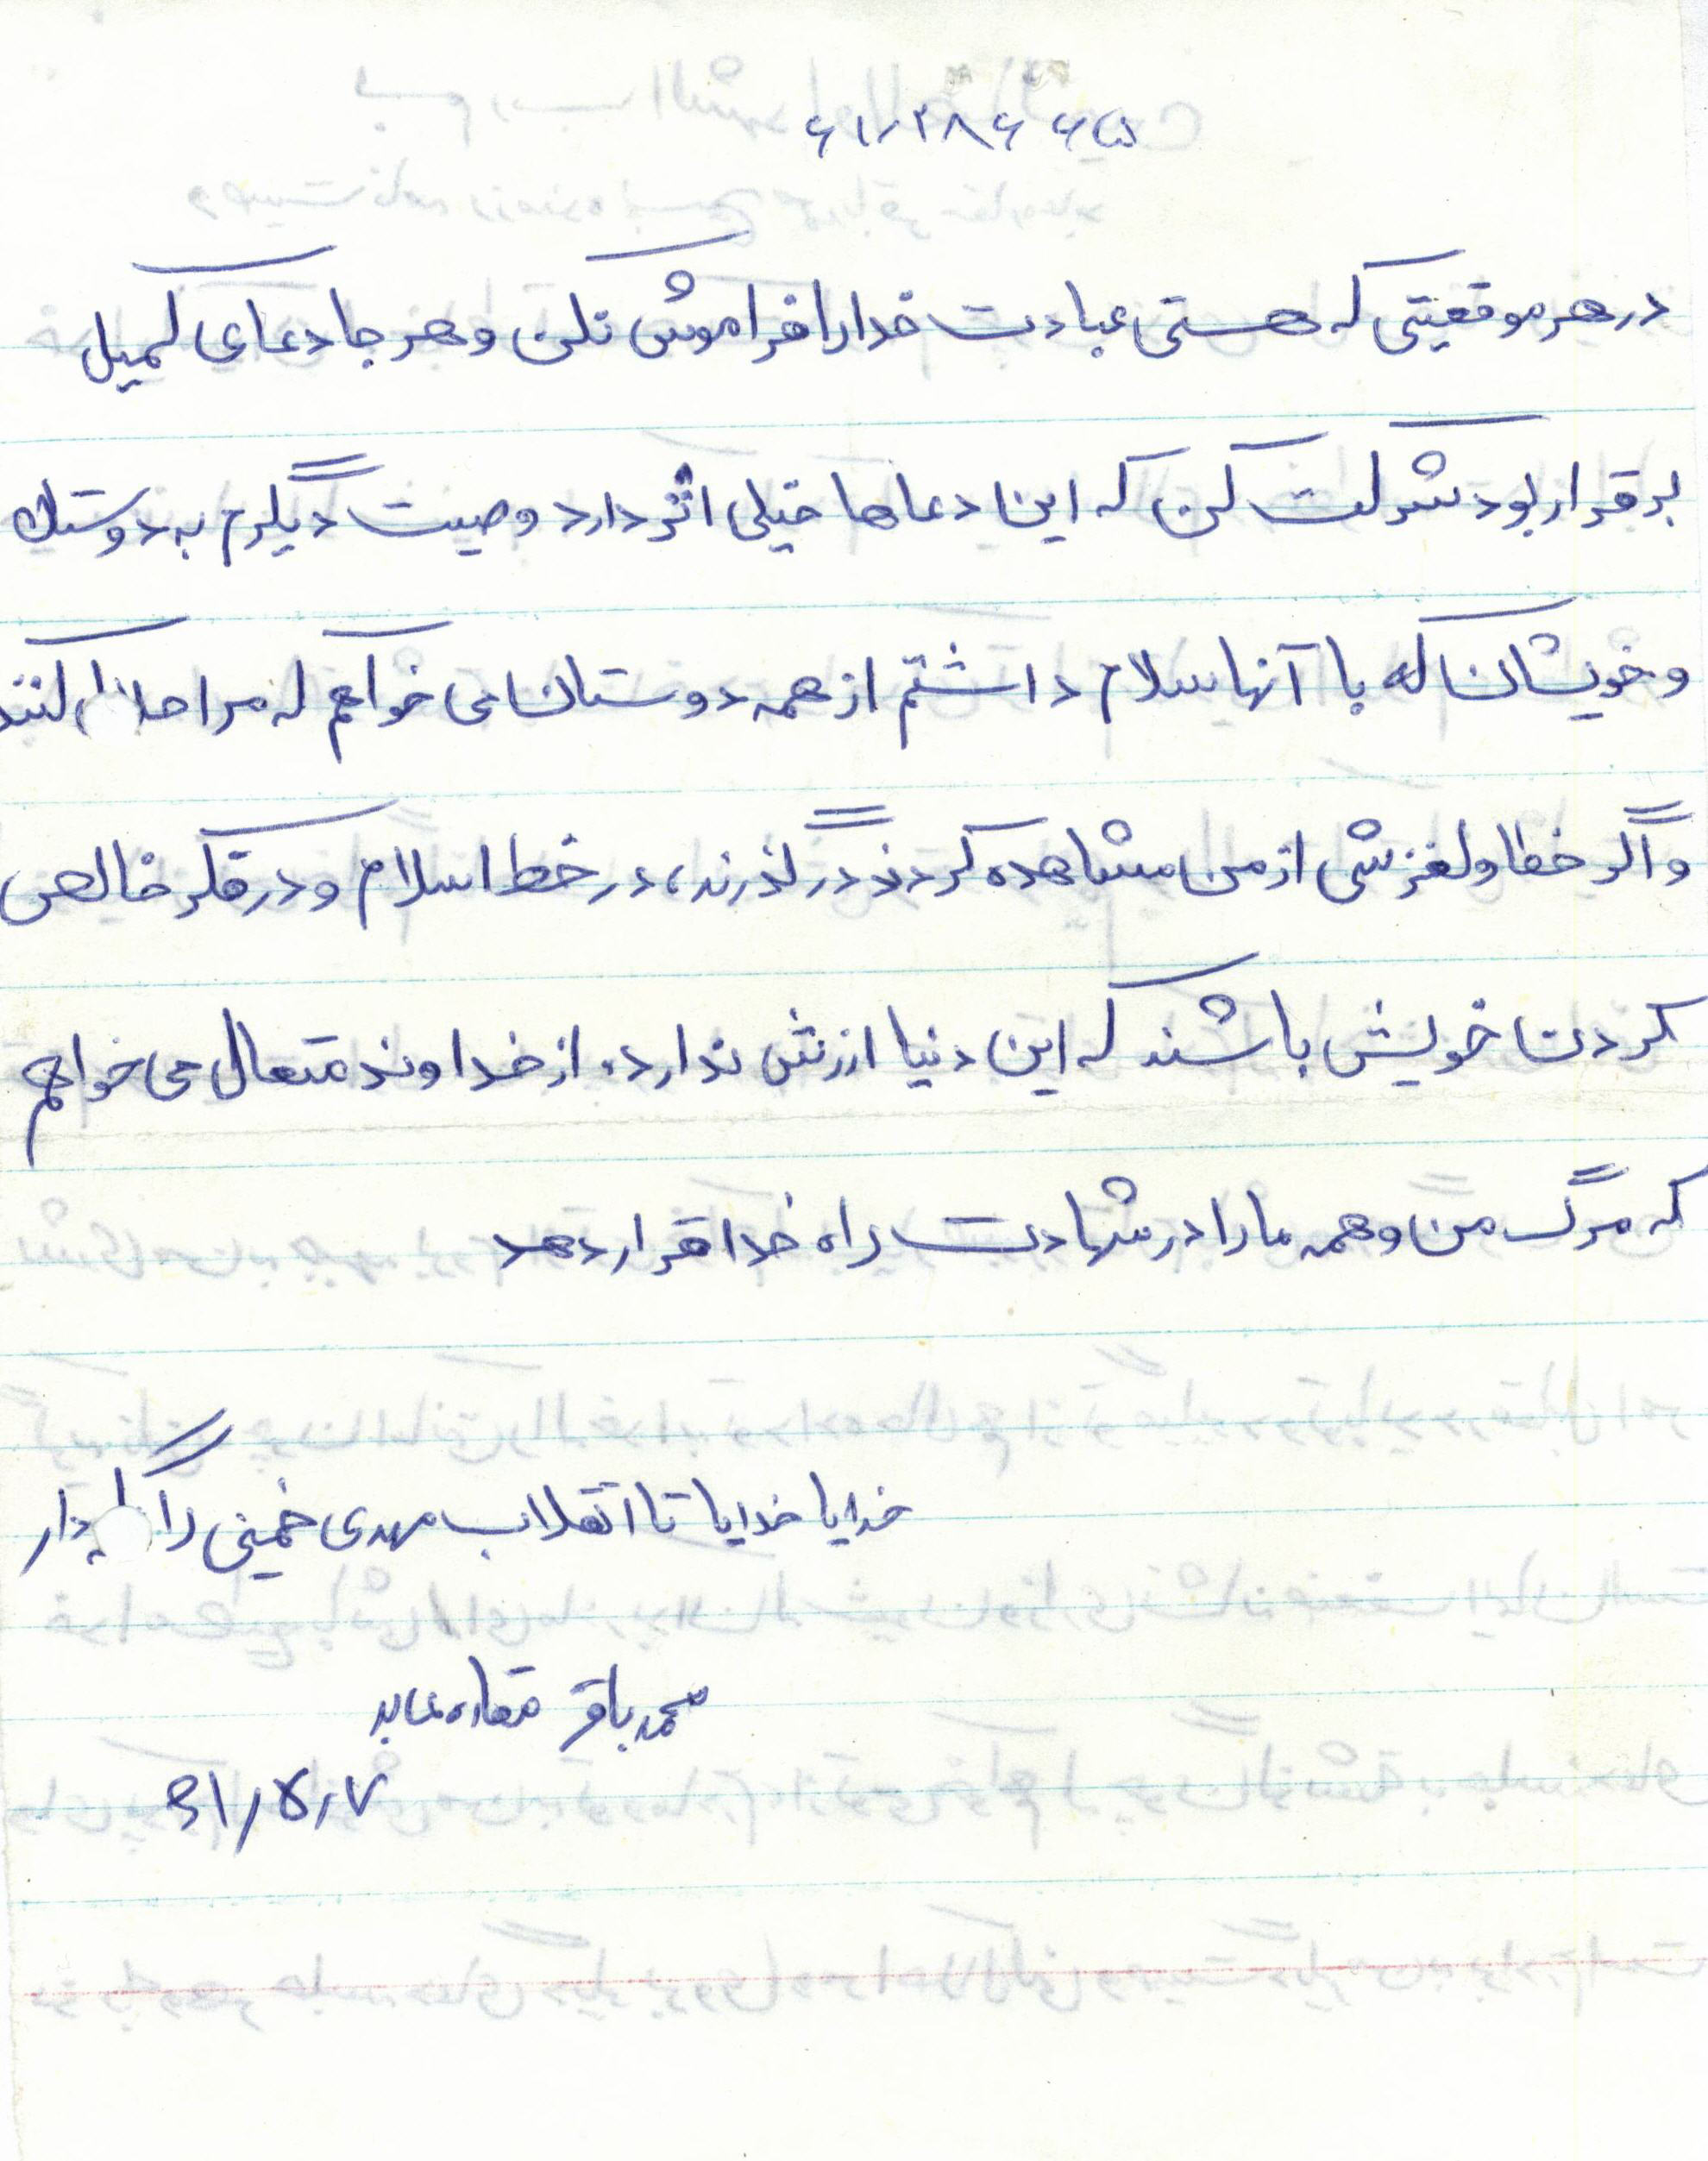 در هر موقعیتی که هستی عبادت خدا را فراموش نکن و هر جا دعای کمیل
برقرار بود شرکت کن که این دعاها خیلی اثر دارد وصیت دیگرم به دوستان
و خویشان که با آنها سلام داشتم از همه دوستان می خواهم که مرا کنند
و اگر خطا و لغزشی از من مشاهده کردند درگذرند، در خط اسلام و در فکر خالص
کردن خویش باشند که این دنیا ارزش ندارد. از خداوند متعال می خواهم
که مرگ من و همه ما را در شهادت راه خدا قرار دهد
خدایا خدایا تا انقلاب مهدی خمینی را
محمد باقر
۶۱/۵/۷